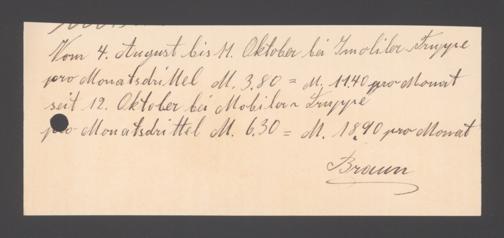 Vom 4. August bis 11. Oktober bei Imobiler Truppe
pro Monatsdrittel M. 3.80 = M. 11.40 pro Monat
seit 12. Oktober bei Mobiler Truppe
pro Monatsdrittel M. 6.30 = M. 18.90 pro Monat
Braun